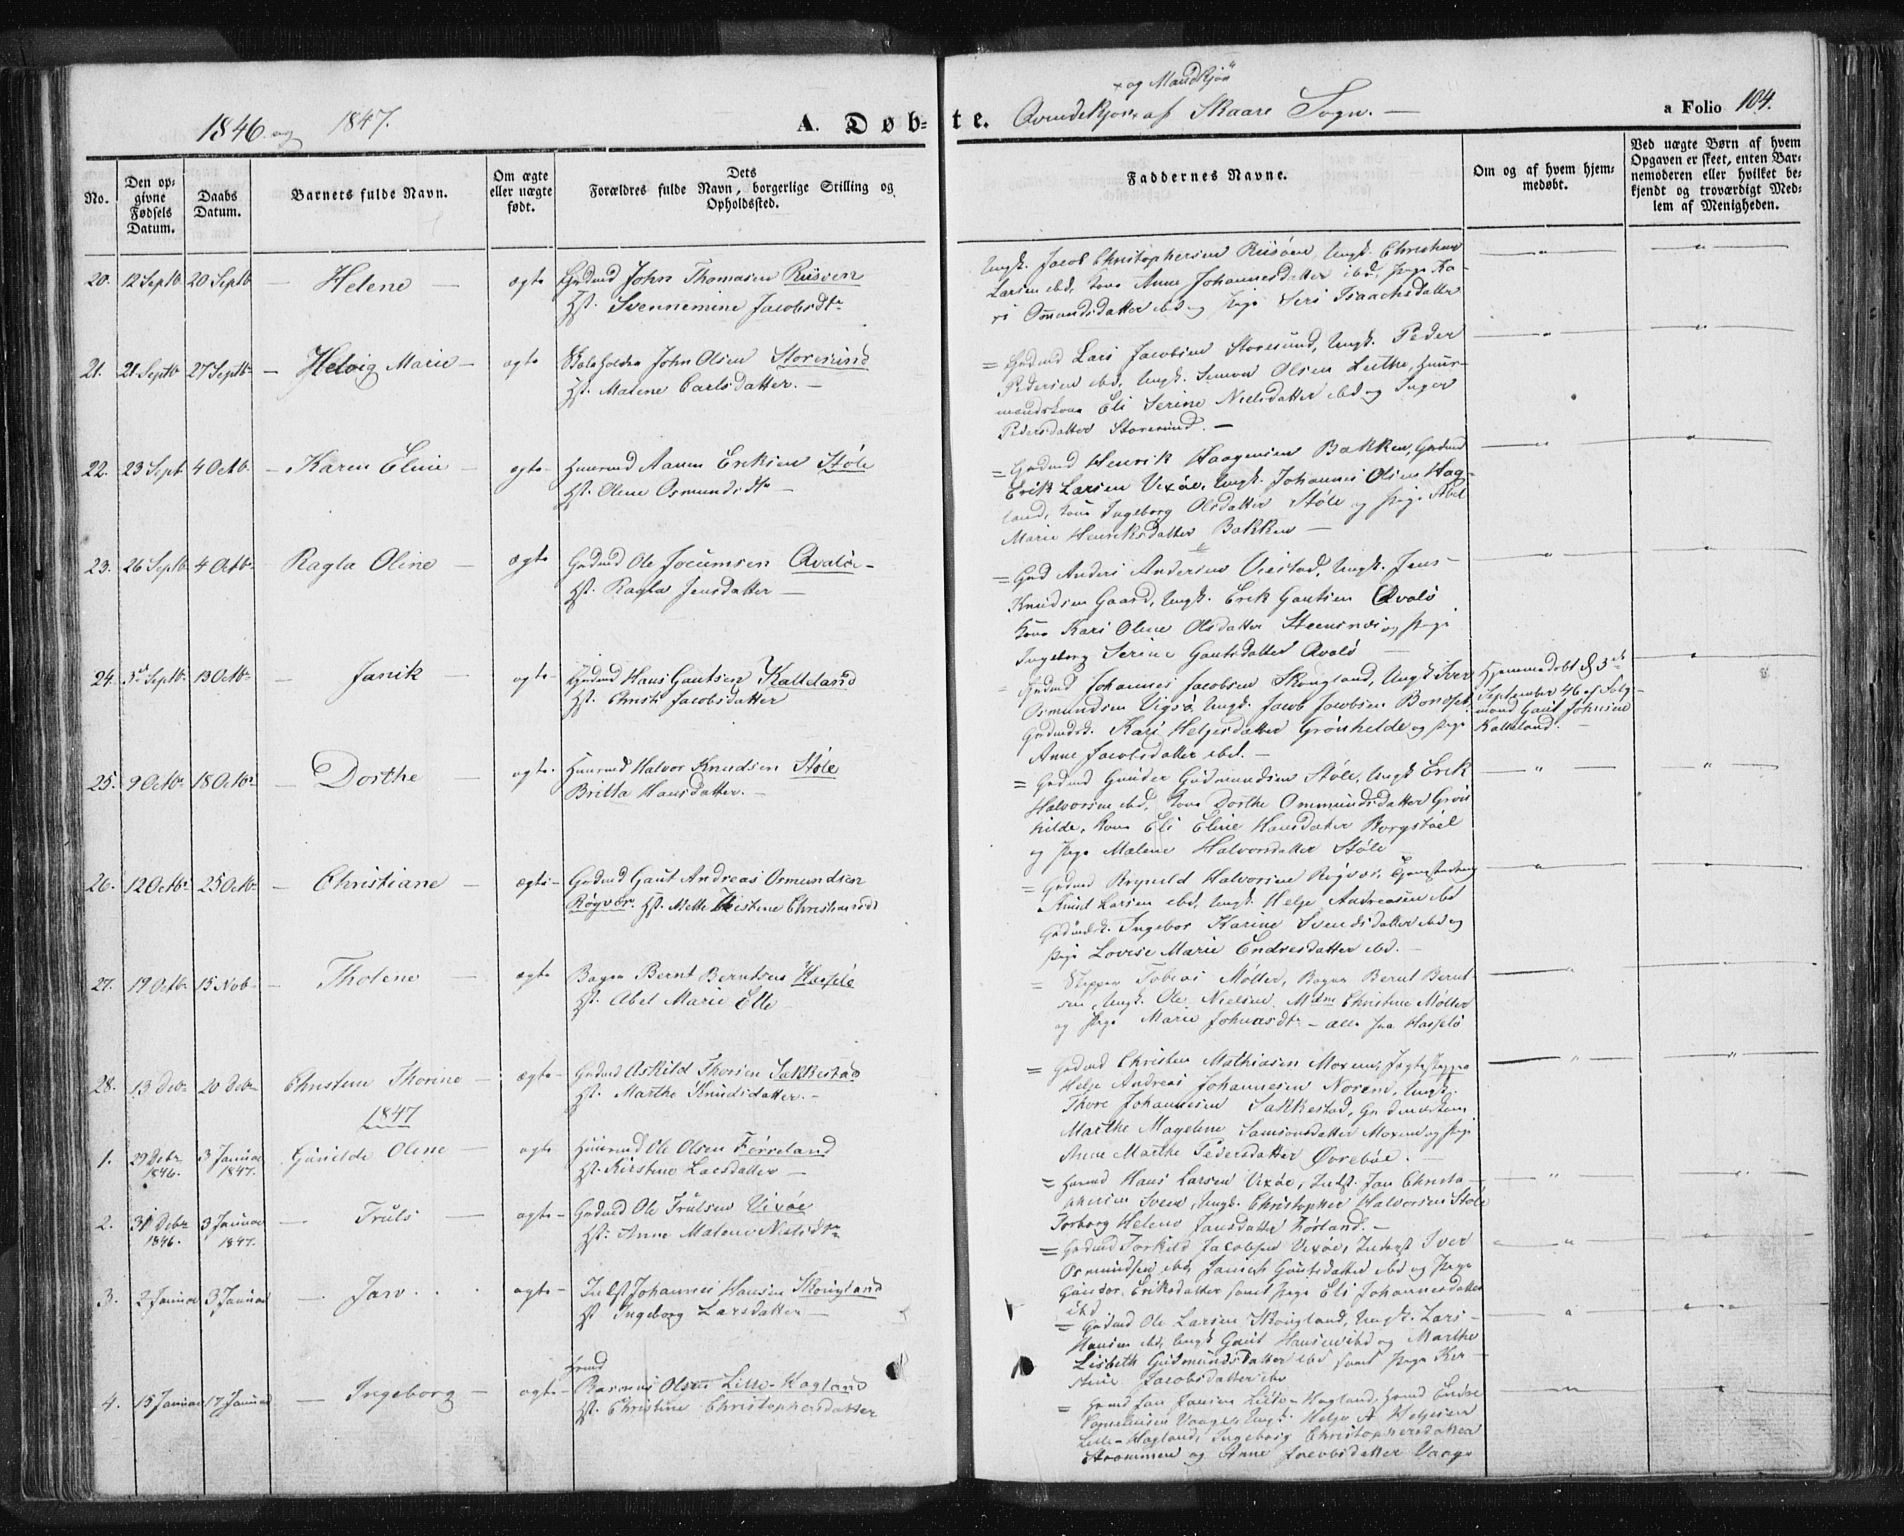 1846 og 1847.
A. Døb-
te.
og Mandkjøn
Qvindekjøn af Skaare Sogn.
a Folio 104.
No.
Den op-
givne
Fødsels
Datum.
Daabs
Datum.
Barnets fulde Navn.
Om ægte
eller uægte
født.
Dets
Forældres fulde Navn, borgerlige Stilling og
Opholdssted.
Faddernes Navne.
Om og af hvem hjem-
medøbt.
Ved uægte Børn af hvem
Opgaven er skeet, enten Bar-
nemoderen eller hvilket be-
kjendt og troværdigt Med-
lem af Menigheden.
20. 12 Septb 20 Septb Helene ægte Grdmd John Thomasen
Hst. Svennemine Jacobsdtr
Ungk. Jacob Christophersen
Larsen ibd, Kone Anne Johannesdatter ibd, Pige Ka-
ri Omundsdatter ibd og Pige Seri Isaachsdatter
21. 21 Septbr 27 Septbr Helvig Marie ægte John Olsen Storesund
Hst. Malene Carlsdatter.
Grdmd Lars Jacobsen Storesund, Ungk. Peder
Pedersen ibd, Ungk. Olsen Huus-
mandskone Eli Serine Nielsdatter ibd og Inger
Pedersdatter Storesund.
22. 23 Sept 4 Octb Karen Eline ægte Huusmd Eriksen Støle
Hst. Olene Osmundsdtr
Grdmd Henrik Haagensen Bakken, Grdmd
Erik Larsen Vixøe, Ungk. Johannes Olsen Hag-
land, Kone Ingeborg Olsdatter Støle og Pige Abel
Marie Henriksdatter Bakken
23. 26 Septb 4 Octbr Ragla Oline ægte Grdmd Ole Jocumsen Qvaløe
Hst. Ragla Jensdatter
Grd Anders Andersen Viestad, Ungk. Jens
Knudsen Gaard, Ungk. Erik Gautsen Qvalø
Kone Kari Oline Olsdatter Steensnæs og Pige
Ingeborg Serine Gautsdatter Qvalø
24. 3d Septb. 13 Octbr Janik ægte Grdmd Hans Gautsen Kalleland
Hst. Jacobsdatter
Grdmd Johannes Jacobsen Skougland, Ungk Iver
Osmundsen Vigsø, Ungk. Jacob Jacobsen
Grdmdsk. Kari Helgesdatter Grønhilde og Pige
Anne Jacobsdatter ibd.
Hjemmedøbt d 3de
September 46 af Følg-
mand Gaut Johnsen
Kalleland.
25. 9 Octbr 18 Octbr Dorthe ægte Huusmd Halvor Knudsen Støle
Britta Hansdatter.
Grdmd Gunder Gudmundsen Støle, Ungk Erik
Halvorsen ibd, Kone Dorthe Ommundsdatter Grøn
hilde, Kone Eli Eline Hansdatter
og Pige Malene Halvorsdatter Støle
26. 12 Octbr 25 Octbr Christiane ægte Grdmd Gaut Andreas Osmundsen
Røgvær. Hst. Mette Kistene Christiansdt
Grdmd Halvorsen Røgvær,
Knud Larsen ibd, Ungk. Helje Andreasen ibd
Grdmdsk. Ingebor Karine Svendsdatter ibd og
Pige Lovise Marie Endresdatter ibd.
27. 19 Octbr 15 Novb Tholene ægte Bager Bernt Berntsen Hasselø
Hst. Abel Marie Elle
Skipper Tobias Møller, Bager Bernt Bernt-
sen, Ungk. Ole Nielsen, Mdm Christine Møller
og Pige Marie Johnasdtr alle fra Hasselø
28. 13 Debr 20 Debr Christine Thorine ægte Grdmd Askild Thorsen Sakkestad
Hst. Marthe Knudsdatter.
Grdmd Christen Mathiasen
Helje Andreas Johannesen Norem, Ungk.
Thore Johannesen Sakkestad,
Marthe Magelene Samsonsdatter og Pige
Anne Marthe Pedersdatter Øvrebøe.
1847
1. 29 Debr
1846. 3 Januar
1847. Gunilde Oline ægte Huusmd Ole Olsen Førreland
Hst. Kirstene Larsdatter
Huusmd Hans Larsen Vixøe, Inds. Jan Christo-
phersen Ungk. Christopher Halvorsen Støle
Torborg Helene Jansdatter
2. 31 Debr
1846. 3 Januar
1847. Truls ægte Grdmd Ole Trulsen Vixøe
Hst. Anne Malene Nielsdtr
Grdmd Torkild Jacobsen Vixøe, Inderst Iver
Osmundsen ibd, Janikh Gautsdatter ibd og Pige
Gundor Eriksdatter samt Pige Eli Johannesdatter
ibd
3. 2 Januar 3 Januar Jan ægte Indst Johannes Hansen Skougland
Hst. Ingeborg Larsdatter
Grdmd Ole Larsen Skougland, Ungk. Lars
Hansen ibd, Ungk Gaut Hansen ibd og Marthe
Lisbeth Gudmundsdatter ibd samt Pige Ker-
stine Jacobsdatter ibd
4. 15 Januar 17 Januar Ingeborg ægte Hrmd
Rasmus Olsen Lille-Hagland
Hst. Christine Christophersdatter
Jan Jansen Lille-Hagland, Endre
Ungk. Helje A Heljesen
Lille-Hagland, Ingeborg Christophersdatter
Strømmen og Anne Jacobsdatter Vaage